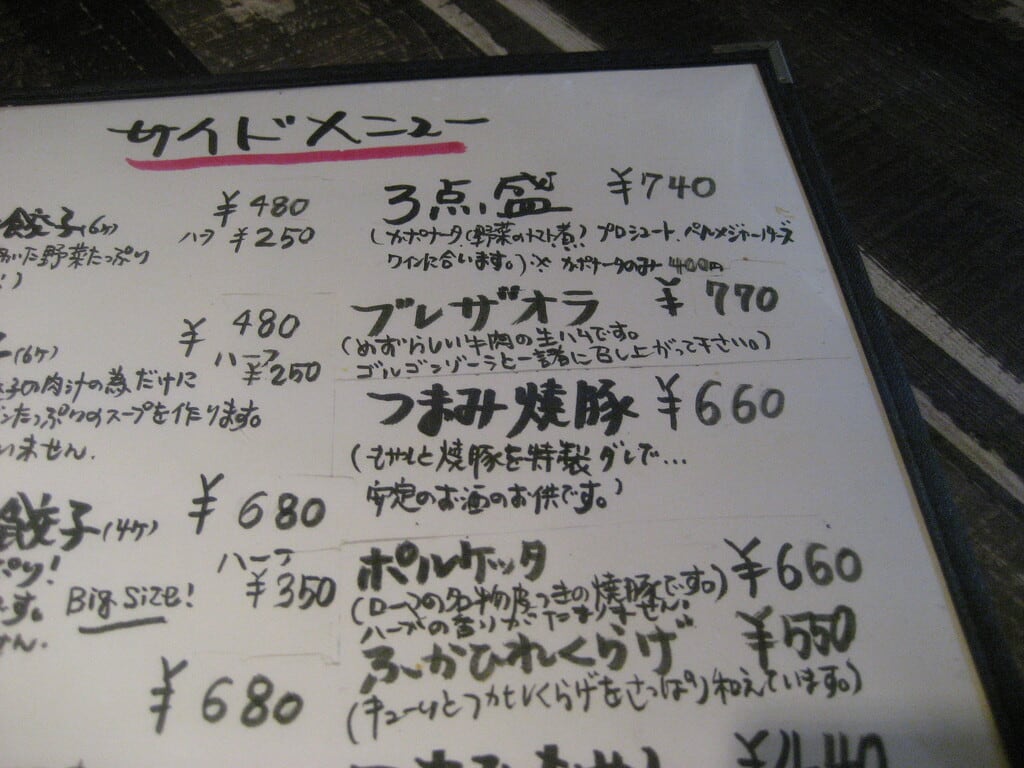 サイドメニュー
餃子(6ヶ) ¥480
ハーフ ¥250
野菜たっぷり
¥480
(6ヶ)
ハーフ
¥250
子の肉汁の為だけに
たっぷりのスープを作ります。
いません。
餃子(4ヶ) ¥680
ハーフ
¥350
Big Size!
¥680
3点盛 ¥740
(カポナータ(野菜のトマト煮)プロシュート、パルメジャーノチーズ
ワインに合います。)※カポナータのみ400円
ブレザオラ ¥770
(めずらしい牛肉の生ハムです。
ゴルゴンゾーラと一緒に召し上がって下さい。)
つまみ焼豚 ¥660
(もやしと焼豚を特製ダレで…
安定のお酒のお供です。)
ポルケッタ ¥660
(ローマの名物皮つきの焼豚です。)
ハーブの香りがたまりません!
ふかひれくらげ ¥550
(キューリとフカヒレくらげをさっぱり和えています。)